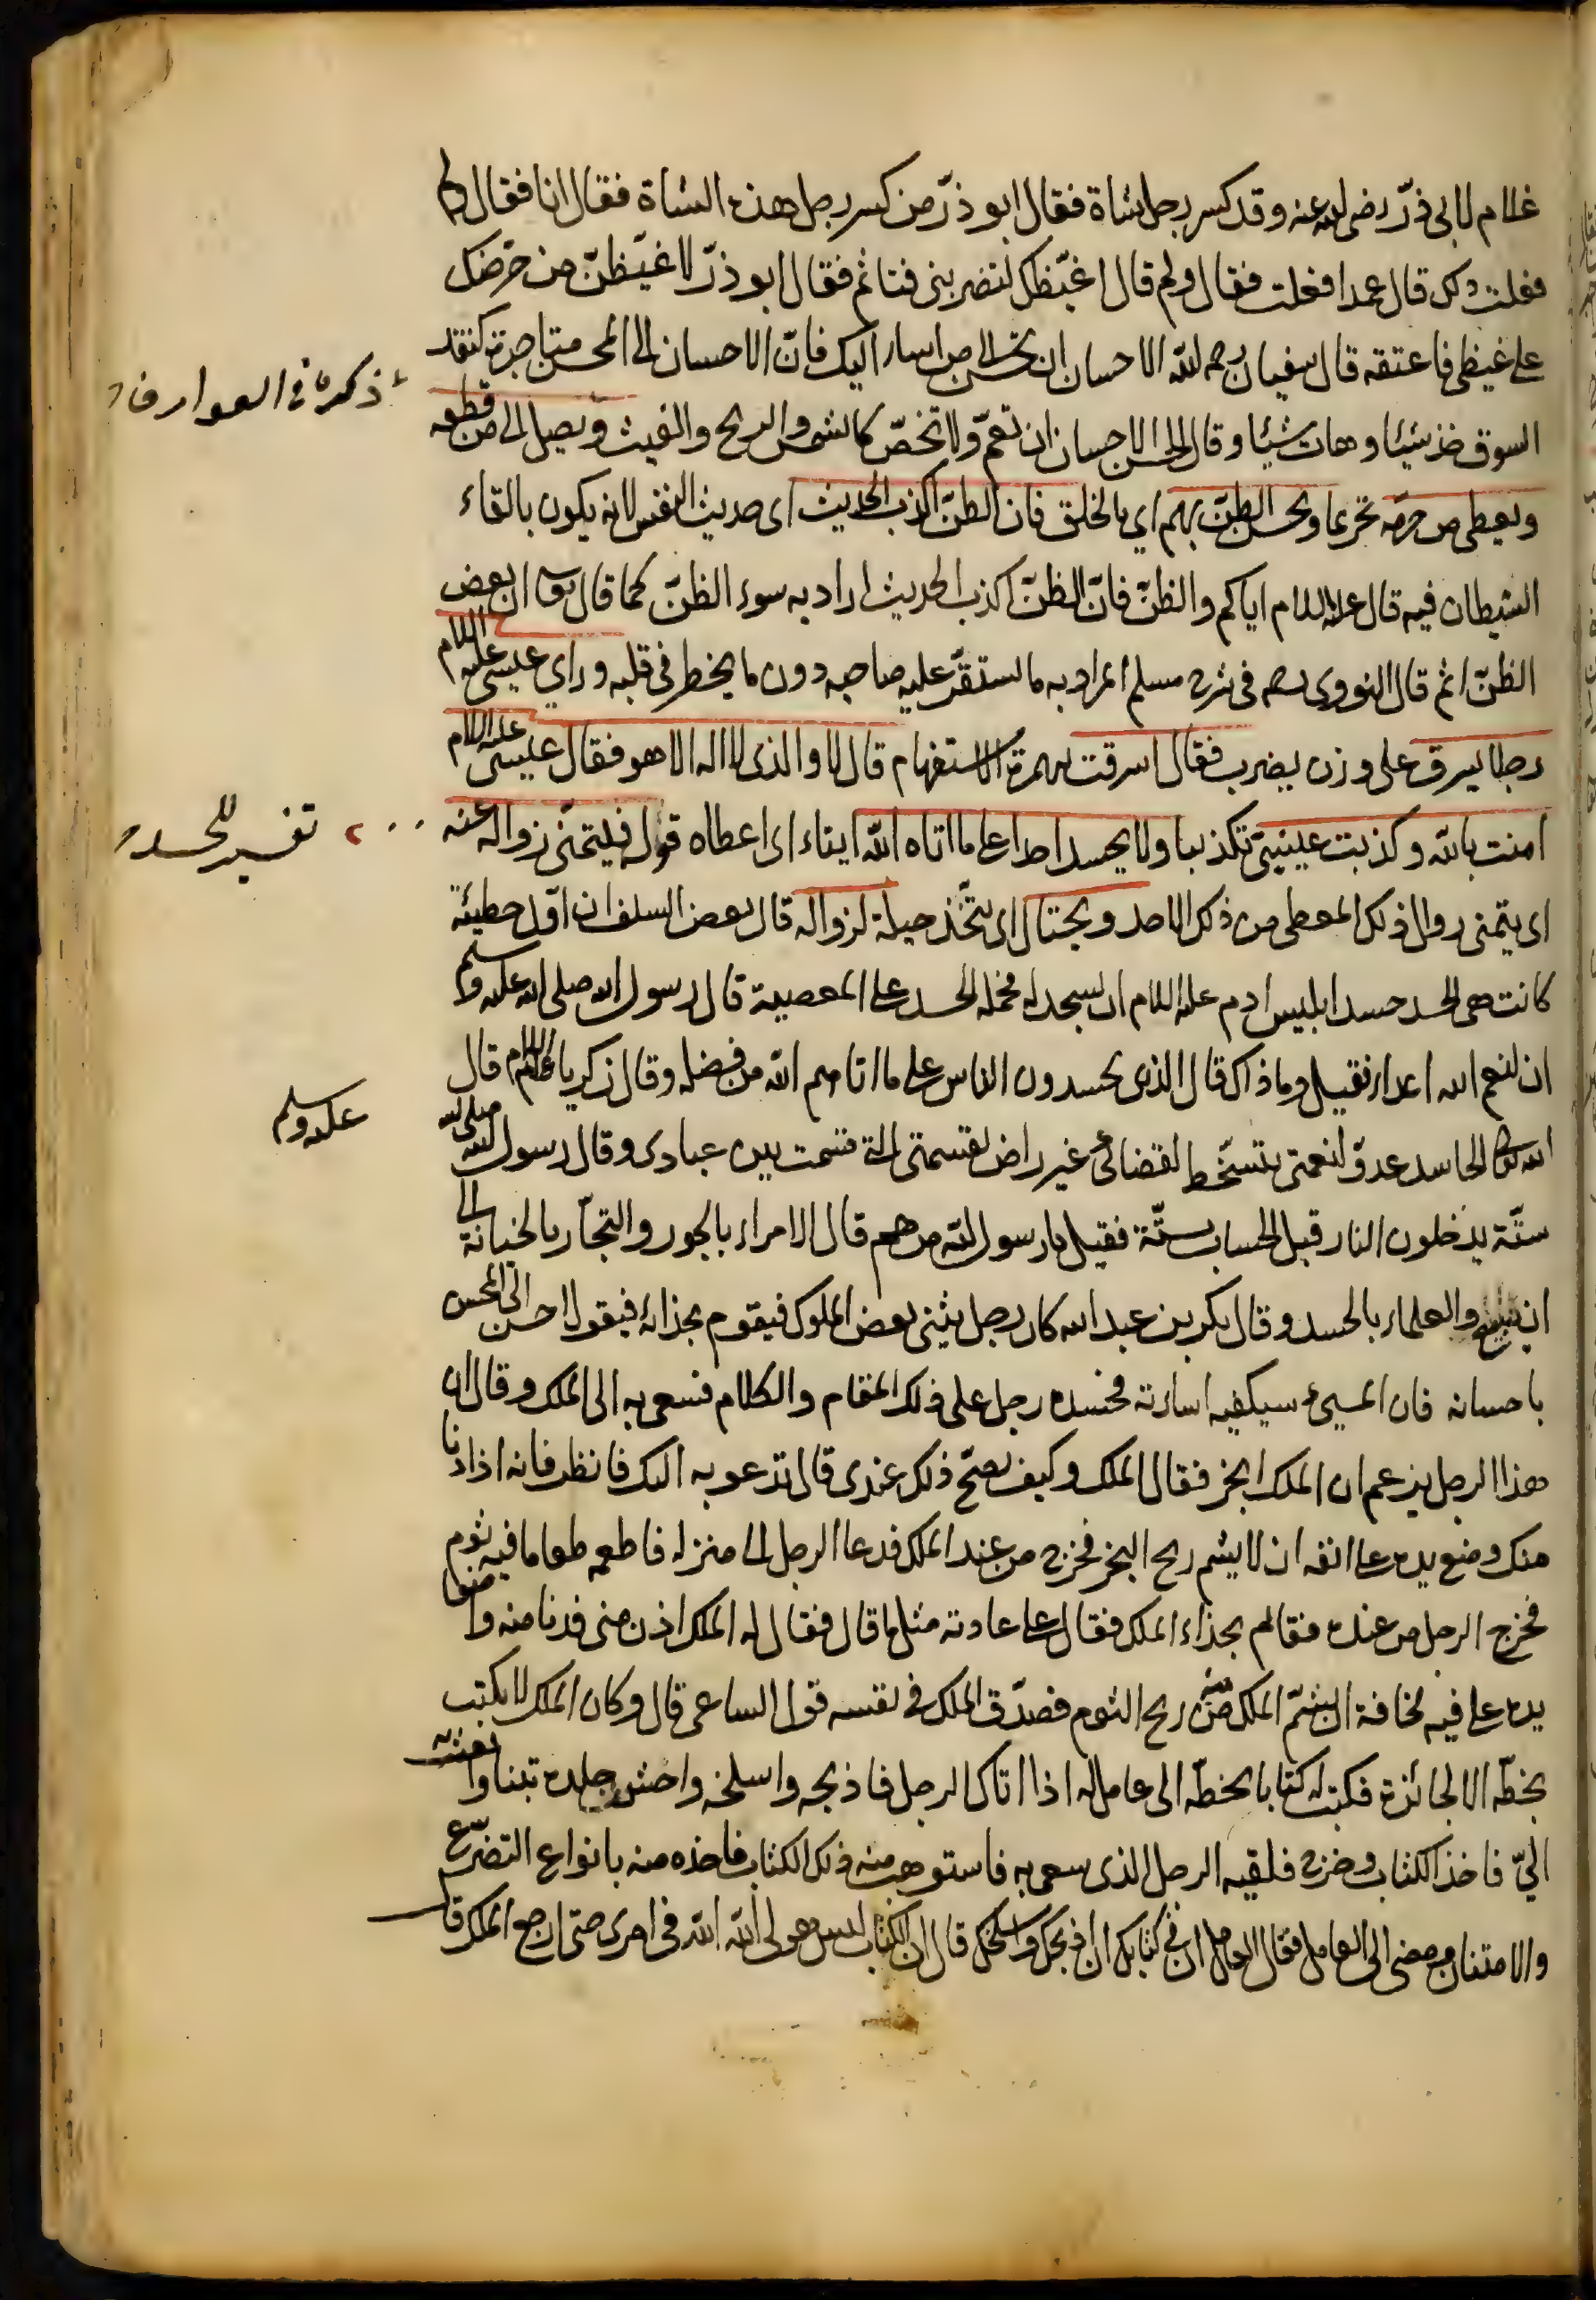 غلام لابى ذرّ رضى الله عنه وقد كسر رجل شاة فقال ابو ذرّ من كسر رجل هذه الشاة فقال انا فقال لم
فعلت ذلك قال عمدا فعلت فقال ولم قال اغيّظك لتضربنى فتاثم فقال ابو ذرّ لاغيّظنّ من حرّضك
على غيظى فاعتقه قال سفيان رحمه الله الاحسان ان تحسن الى من اساء اليك فانّ الاحسان الى المحسن متاجرة كنقد
السوق خذ شيئا وهات شيئا وقال الحسن الاحسان ان تعمّ ولا تخصّ كالشمس والريح والغيث ويصل الى من قطعه
ويعطى من حرمه تحريما ويحسن الظنّ بهم اي بالخلق فان الظنّ اكذب الحديث اى حديث النفس لانه يكون بالقاء
الشيطان فيه قال عليه السلام اياكم والظنّ فانّ الظنّ اكذب الحديث اراد به سوء الظنّ كما قال تعالى ان بعض
الظنّ اثم قال النووى رحمه فى شرح مسلم المراد به ما استقرّ عليه صاحبه دون ما يخطر فى قلبه وراي عيسى عليه السلام
رجلا يسرق على وزن يضرب فقال اسرقت بهمزة الاستفهام قال لا والذى لا اله الا هو فقال عيسى عليه السلام
امنت بالله وكذبت عينيىّ تكذيبا ولا يحسد احدا على ما اتاه الله ايتاء اى اعطاه قوله فيتمنّى زواله عنه
اى يتمنى زوال ذلك المعطى من ذلك الاحد ويحتال اى يتّخذ حيلة لزواله قال بعض السلف ان اوّل خطيئة
كانت هى الحسد حسد ابليس ادم عليه السلام ان يسجد له فحمله الحسد على المعصية قال رسول الله صلى الله عليه وسلم
ان لنعم الله اعداء فقيل وما ذاك قال الذى يحسدون الناس على ما اتاهم الله من فضله وقال زكريا عليه السلام قال
الله تعالى الحاسد عدوّ لنعمتى يتسخّط لقضائى غير راض لقسمتى التى قسمت بين عبادى وقال رسول الله صلى الله
ستّة يدخلون النار قبل الحساب بستّة فقيل يا رسول الله من هم قال الامراء بالجور والتجّار بالخيانة الى
ان والعلماء بالحسد وقال بكر بن عبد الله كان رجل يثنى بعض الملوك فيقوم بحذائه فيقول احسن الى المحسن
باحسانه فان المسيئ سيكفيه اساءته فحسده رجل على ذلك المقام والكلام فسعى به الى الملك وقال ان
هذا الرجل يزعم ان الملك ابخر فقال الملك وكيف يصحّ ذلك عندى قال تدعو به اليك فانظر فانه اذا دنا
منك وضع يده على انفه ان لا يشم ريح البخر فخرج من عند الملك فدعا الرجل الى منزله فاطعمه طعاما فيه ثوم
فخرج الرجل من عنده فقام بحذاء الملك فقال على عادته مثل ما قال فقال له الملك اذن منى فدنا منه واضعا
يده على فيه مخافة ان يشمّ الملك منه ريح الثوم فصدّق الملك فى نفسه قول الساعى قال وكان الملك لا يكتب
بخطّه الا الجائزة فكتب له كتابا بخطّه الى عامل له اذا اتاك الرجل فاذبحه واسلخه واحش جلده تبنا وابعثه
اليّ فاخذ الكتاب وخرج فلقيه الرجل الذى سعى به فاستوهب منه ذلك الكتاب فاخذه منه بانواع التضرّع
والامتنان ومضى الى العامل فقال العامل ان فى كتابك ان اذبحك واسلخك قال ان الكتاب ليس هو لى الله الله فى امرى حتى ارجع الملك قال
ذكره فى العوارف
تفسير للحسد
عليه وسلم